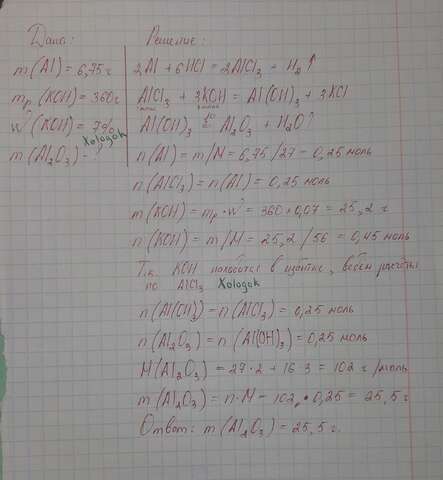 Дано:
m(Al) = 6,75 г
mр(KOH) = 360г
w(KOH) = 7%
Xologok
m(Al₂O₃) - ?
Решение:
2Al + 6HCl = 2AlCl₃ + H₂↑
AlCl₃ + 3KOH = Al(OH)₃ + 3KCl
Al(OH)₃ = Al₂O₃ + H₂O↑
n(Al) = m/M = 6,75/27 = 0,25 моль
n(AlCl₃) = n(Al) = 0,25 моль
m(KOH) = mр · w = 360 · 0,07 = 25,2 г
n(KOH) = m/M = 25,2/56 = 0,45 моль
Т.к. KOH находится в избытке, ведем расчеты
по AlCl₃ Xologok
n(Al(OH)₃) = n(AlCl₃) = 0,25 моль
n(Al₂O₃) = n(Al(OH)₃) = 0,25 моль
M(Al₂O₃) = 27·2 + 16·3 = 102 г/моль
m(Al₂O₃) = n·M = 102 · 0,25 = 25,5 г
Ответ: m(Al₂O₃) = 25,5 г.